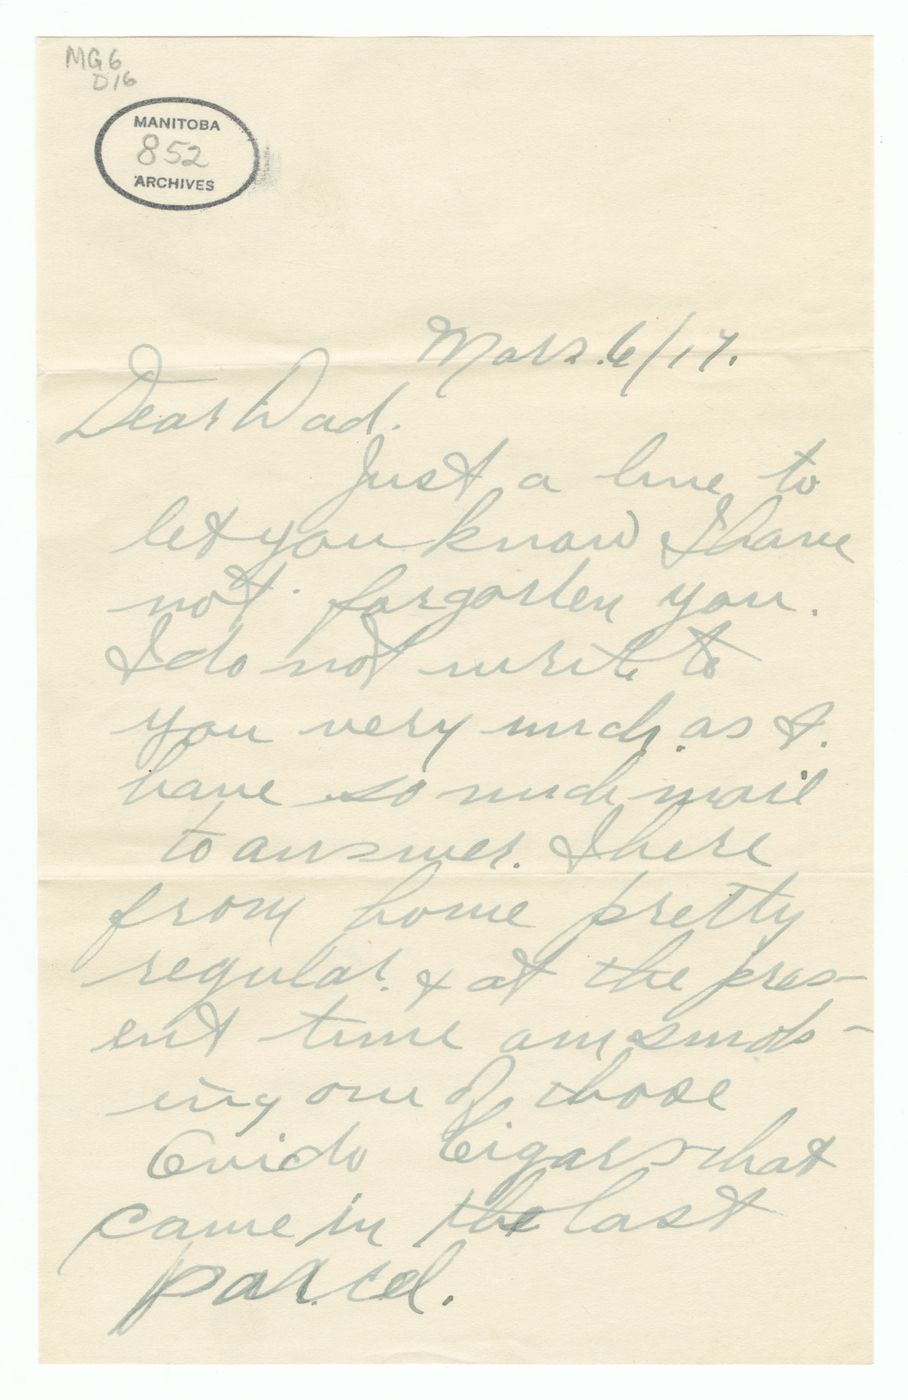 MG6
D16
MANITOBA
852
ARCHIVES
Mars. 6/17.
Dear Dad.
Just a line to
let you know I have
not forgotten you.
I do not write to
you very much. as I.
have so much mail
to answer. I here
from home pretty
regular. & at the pres-
ent time am smok-
ing one of those
Ovido Cigars that
came in the last
parcel.